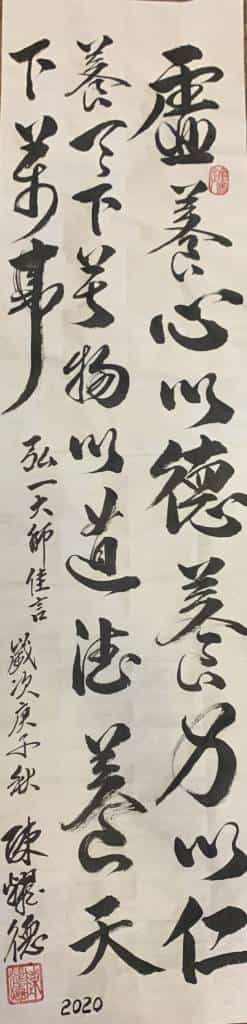 虛養心以德養身以仁
養天下萬物以道德養天
下萬事
弘一大師佳言 歲次庚子秋 陳耀德
2020